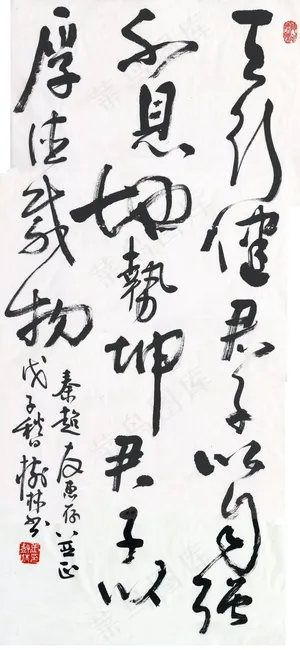 天行健君子以自强
不息地勢坤君子以
厚德载物
秦超友惠存以正
戊子秋日